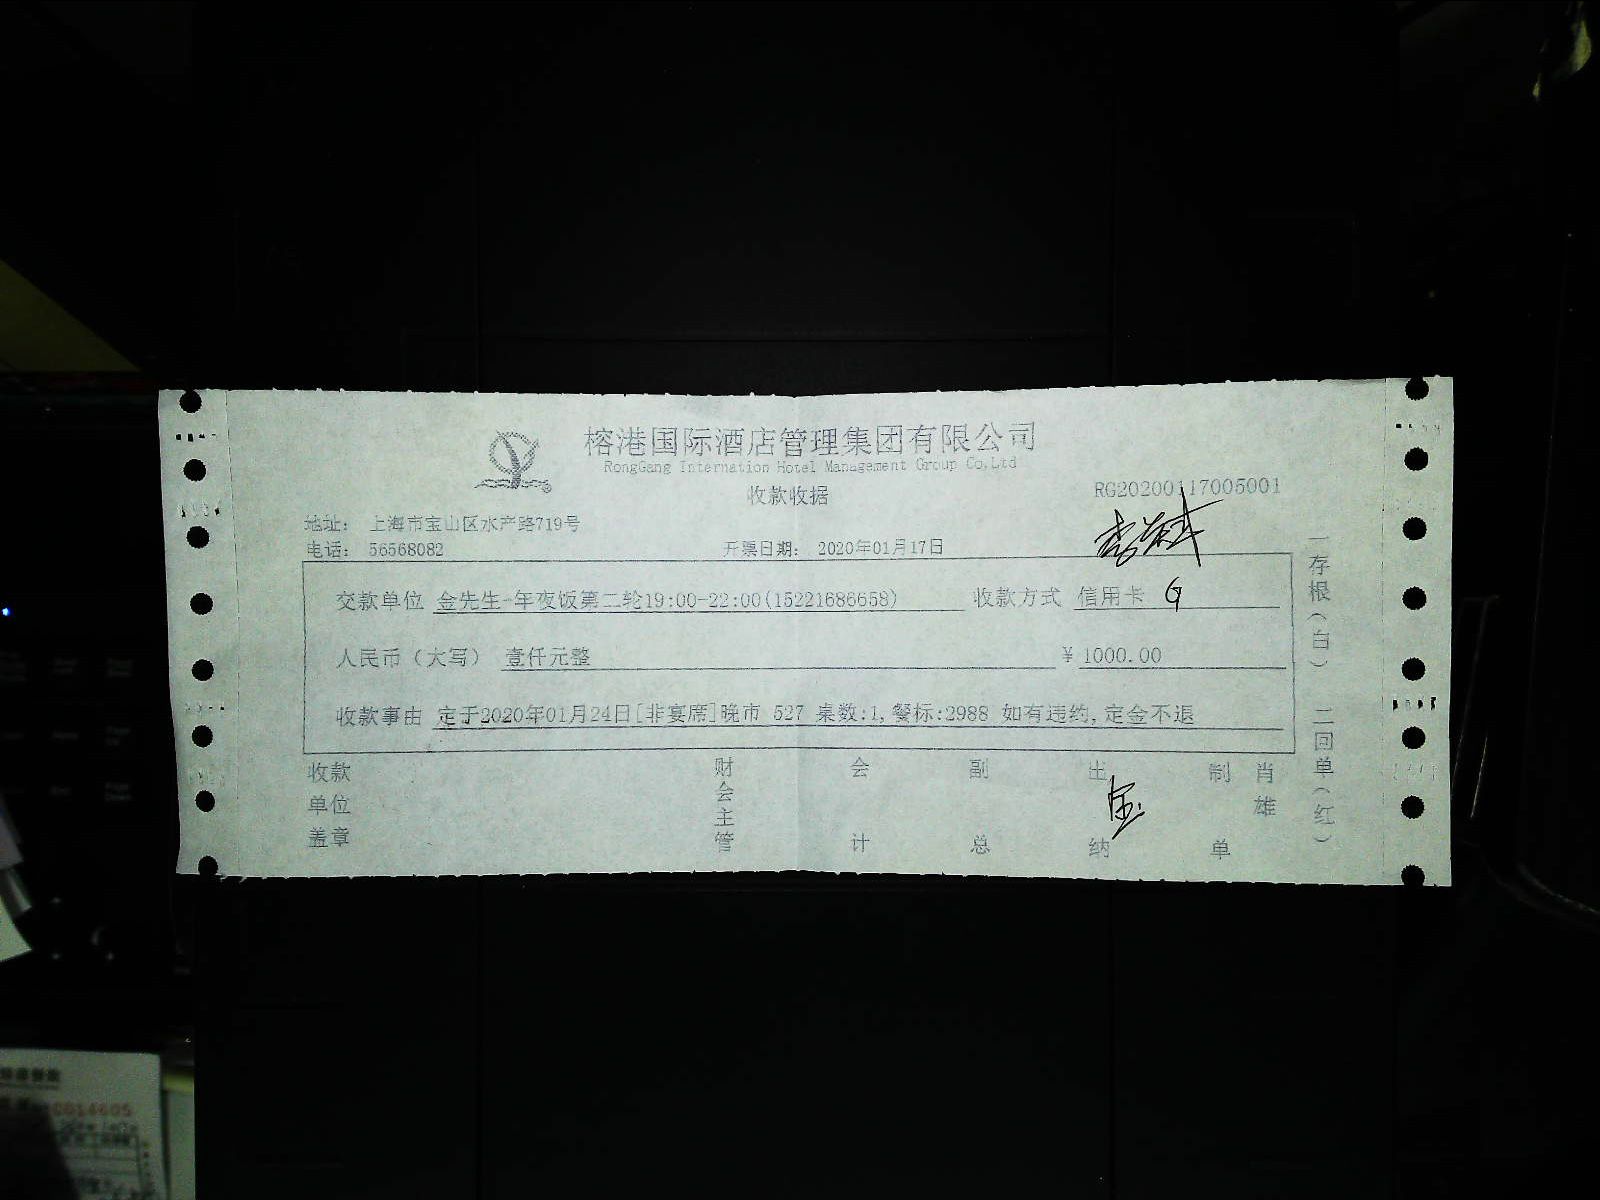 榕港国际酒店管理集团有限公司
RongGang Internation Hotel Management Group Co,Ltd
收款收据
RG20200117005001
地址： 上海市宝山区水产路719号
电话： 56568082
开票日期： 2020年01月17日
交款单位 金先生-年夜饭第二轮19:00-22:00(15221686658)
收款方式 信用卡 G
人民币（大写） 壹仟元整
¥ 1000.00
收款事由 定于2020年01月24日[非宴席]晚市 527 桌数:1,餐标:2988 如有违约,定金不退
收款单位盖章
财会主管
会计
副总
出纳
制单
肖雄
一存根（白） 二回单（红）
0014605